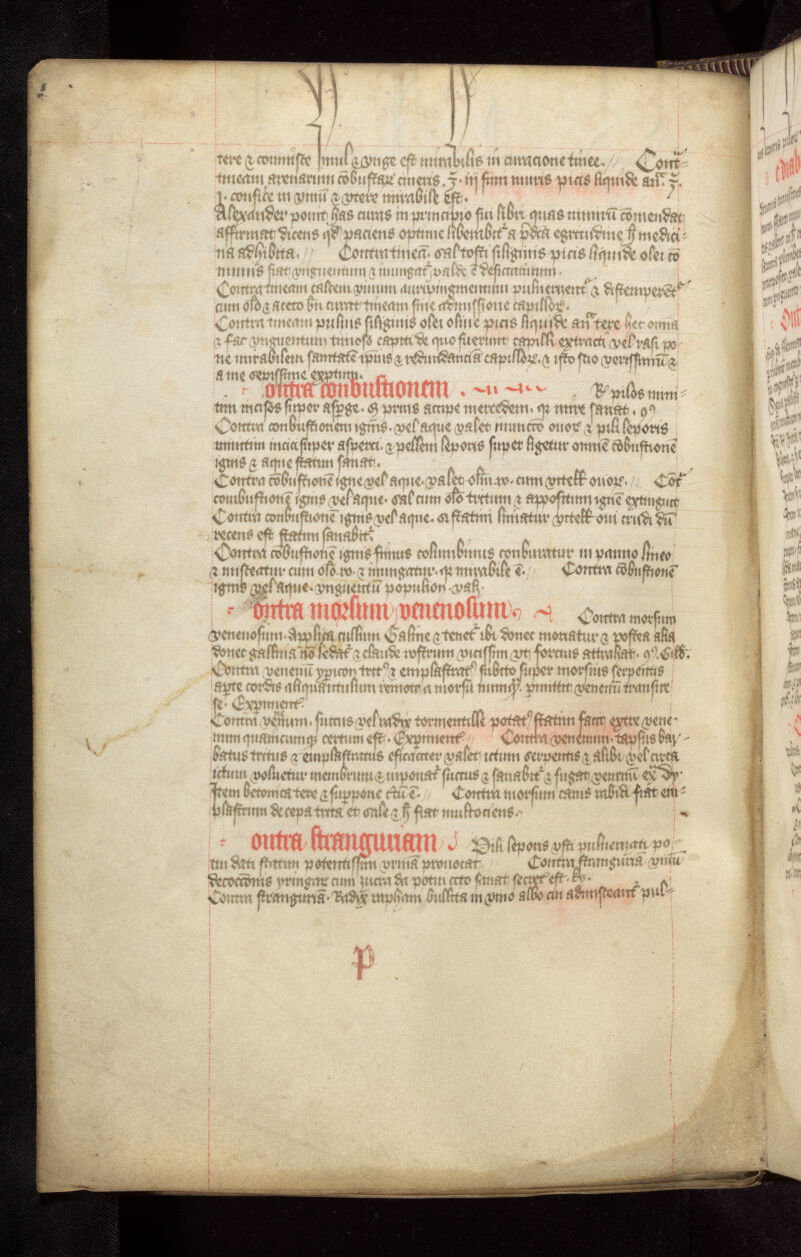 tere ⁊ commisce simul ⁊ unge est mirabilis in curacione tinee. // Contᵃ
tineam arenarum cōbustaꝝ cineris. ℥. iij fimi muris picis liquide añ. ℥.
j. confice in unum ⁊ utere mirabile est.
Alexander ponit has curas in principio sui libri quas nimiū cōmendat
affirmat dicens qđ paciens optime liberabitᵗ a pđca egritudine si medici-
na adhibita. // Contra tineā. sal tosti siliginis picis liquide olei cō
munis fiat unguentum ⁊ inungatᵗ valde ē desiccatiuum.
Contra tineam calcem uiuam auripigmentum puluerizentᵗ ⁊ distemperētᵗ
cum oleo ⁊ aceto bn̄ curat tineam sine admissione capilloꝝ.
Contra tineam puluis siliginis olei oliue picis liquide añ tere hec omnia
⁊ fac unguentum tinoso capiti de quo fuerint capilli extracti uel rasi po
ne mirabilem sanitatē ipius ⁊ redundancia capilloꝝ. ⁊ isto scio uerissimū ⁊
a me sepissime exptum.
ontra conbustionem. ℞ pilos
tim incisos super asperge. ꝗ prius accipe mercedem. qꝛ mire sanat. ꝯ
Contra conbustionem ignis. uel aque ualet ouoꝝ ⁊ pili leporis
minutim incisi super aspersi. ⁊ pellem leporis super ligetur omnē cōbustionē
ignis ⁊ aque statim sanat.
Contra cōbustionē igne uel aque. ualet oleū ro. cum uitell ouoꝝ. // Cōt
combustionē ignis uel aque. sal cum oleo tritum ⁊ appositum ignē extinguit
Contra conbustionē ignis uel aque. si statim liniatur uitell oui crudi dū
recens est statim sanabitᵗ.
Contra cōbustionē ignis fimus columbinus conburatur in panno lineo
⁊ misceatur cum oleo. ro. ⁊ inungatur. qꝛ mirabile ē. // Contra cōbustionē
ignis uel aque. unguentū populion. ual.
ontra morsum uenenosum. Contra morsum
uenenosum. applica culum galine ⁊ tenetᵗ ibi donec moriatur ⁊ postea alia
donec gallina nō ledatᵗ ⁊ claude rostrum uicissim ut forcius attrahat. ꝯ. Gilb.
Contra uenenū ypicon tritꝰ ⁊ emplastratꝰ subito super morsus serpentis
apte cordis aliquantulum remote a morsu numqᷓ. pmittit uenenū transire
se. Expimentᵗ.
Contra uenēnum. sucus uel radix tormentille potatᵗ statim facit exire uene-
num quamcumqꝫ certum est. Expimentᵗ // Contra uenenum. tapsus bar-
batus tritus ⁊ emplastratus eficaciter ualet ictum serpentis ⁊ alibi uel circa
ictum uoluetur membrum ⁊ inponatᵗ succus ⁊ sanabitᵗ ⁊ fugat uenenū ex Dy.
Item betonica tere ⁊ suppone ctū ē. // Contra morsum canis rabidi fiat em-
plastrum de cepa trita et sale ⁊ fiat
ontra stranguriam Pili leporis usti puluerizati po-
tui dati statim potentissim urinā prouocat. Contra stranguriā uinū
decoctionis cum zucra da potui cito sanat secret est.
Contra stranguriā. Radix raphani bullita in uino albo cui admisceantᵗ pul-
P